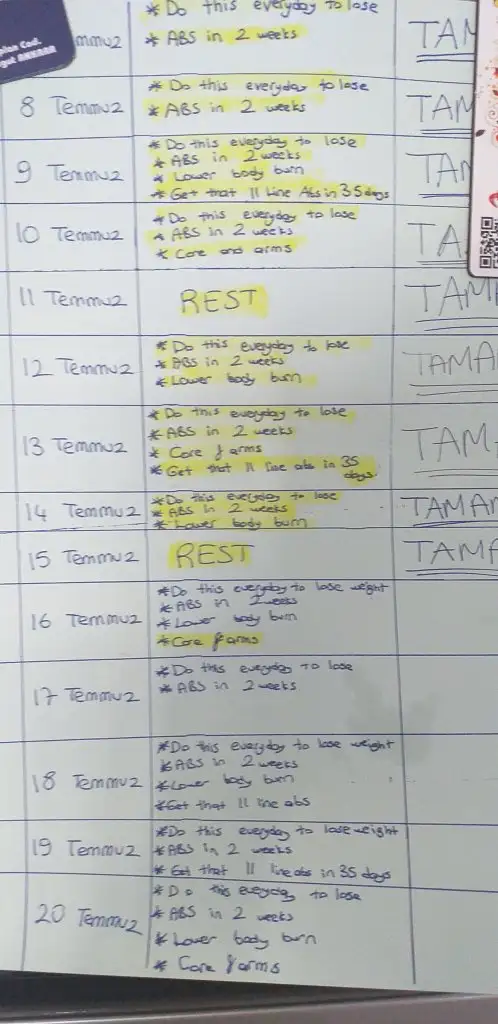 * Do this everyday to lose
mmuz
* ABS in 2 weeks
TAM
8 Temmuz
* Do this everyday to lose
* ABS in 2 weeks
TAM
9 Temmuz
* Do this everyday to lose
* ABS in 2 weeks
* Lower body burn
* Get that 11 Line Abs in 35 days
TAM
10 Temmuz
* Do this everyday to lose
* ABS in 2 weeks
* Core and arms
TA
11 Temmuz
REST
TAM
12 Temmuz
* Do this everyday to lose
* ABS in 2 weeks
* Lower body burn
TAMA
13 Temmuz
* Do this everyday to lose
* ABS in 2 weeks
* Core & arms
* Get that 11 line abs in 35
days
TAM
14 Temmuz
* Do this everyday to lose
* ABS in 2 weeks
* Lower body burn
TAMAM
15 Temmuz
REST
TAMA
16 Temmuz
* Do this everyday to lose weight
* ABS in 2 weeks
* Lower body burn
* Core & arms
17 Temmuz
* Do this everyday to lose
* ABS in 2 weeks
18 Temmuz
* Do this everyday to lose weight
* ABS in 2 weeks
* Lower body burn
* Get that 11 line abs
19 Temmuz
* Do this everyday to lose weight
* ABS in 2 weeks
* Get that 11 line abs in 35 days
20 Temmuz
* Do this everyday to lose
* ABS in 2 weeks
* Lower body burn
* Core & arms